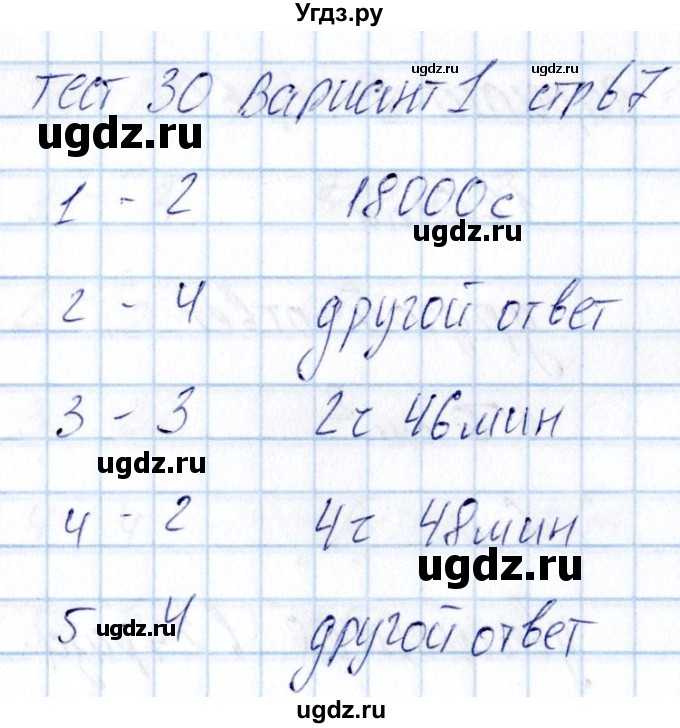 Угдз.ру
Тест 30 Вариант 1 стр 67
ugdz.ru
ugdz.ru
ugdz.ru
1 - 2 18000 с
ugdz.ru
2 - 4 другой ответ
3 - 3 2 ч 46 мин
ugdz.ru
4 - 2 4 ч 48 мин
ugdz.ru
5 - 4 другой ответ
ugdz.ru
ugdz.ru